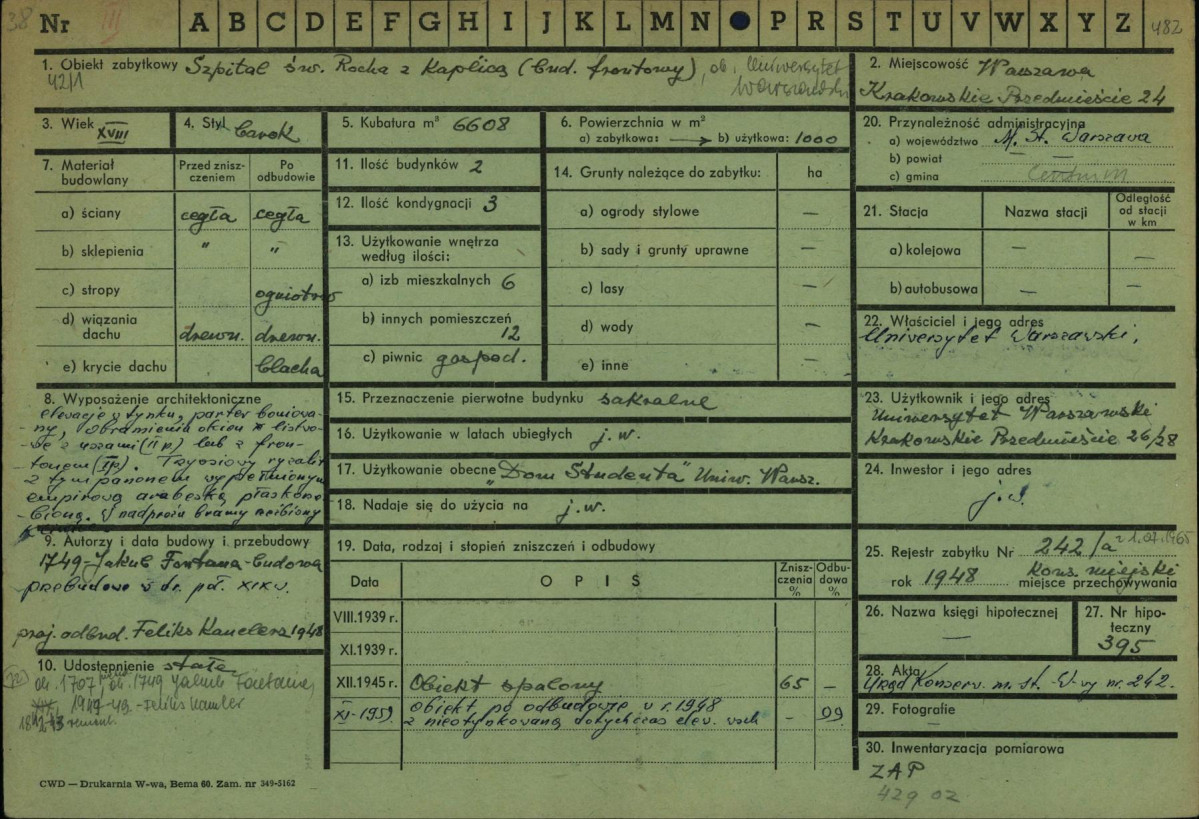 38 Nr III A B C D E F G H I J K L M N P R S T U V W X Y Z 482
1. Obiekt zabytkowy Szpital św. Rocha z Kaplicą (bud. frontowy), ob. Uniwersytet
42/1 Warszawski
2. Miejscowość Warszawa
Krakowskie Przedmieście 24
3. Wiek XVIII
4. Styl barok
5. Kubatura m³ 6608
6. Powierzchnia w m²
a) zabytkowa: → b) użytkowa: 1000
20. Przynależność administracyjna
a) województwo M. St. Warszawa
b) powiat —
c) gmina Centrum
7. Materiał budowlany
Przed zniszczeniem
Po odbudowie
a) ściany cegła cegła
b) sklepienia " "
c) stropy ogniotrw
d) wiązania dachu drewn. drewn.
e) krycie dachu blacha
11. Ilość budynków 2
12. Ilość kondygnacji 3
13. Użytkowanie wnętrza
według ilości:
a) izb mieszkalnych 6
b) innych pomieszczeń
12
c) piwnic gospod.
14. Grunty należące do zabytku: ha
a) ogrody stylowe —
b) sady i grunty uprawne —
c) lasy —
d) wody —
e) inne —
21. Stacja Nazwa stacji Odległość od stacji w km
a) kolejowa — —
b) autobusowa — —
22. Właściciel i jego adres
Uniwersytet Warszawski,
8. Wyposażenie architektoniczne
elewacje w tynku, parter boniowa-
-ny, obramienia okien listwo-
-we z uszami (II p) lub z fron-
tonem (I p). Trzyosiowy ryzalit
z tympanonem wypełnionym
empirową arabeską płasko
W nadprożu bramy
15. Przeznaczenie pierwotne budynku sakralne
16. Użytkowanie w latach ubiegłych j.w.
17. Użytkowanie obecne „Dom Studenta" Uniw. Warsz.
18. Nadaje się do użycia na j.w.
23. Użytkownik i jego adres
Uniwersytet Warszawski
Krakowskie Przedmieście 26/28
24. Inwestor i jego adres
j.w.
9. Autorzy i data budowy i przebudowy
1749-Jakub Fontana-budowa
przebudowa w dr. poł. XIX w.
proj. odbud. Feliks Kanclerz 1948
19. Data, rodzaj i stopień zniszczeń i odbudowy
Data OPIS Zniszczenia % Odbudowa %
VIII.1939 r.
XI.1939 r.
XII.1945 r. Obiekt spalony 65 —
XI-1959. obiekt po odbudowie w r. 1948
z nieotynkowaną dotychczas elew. wsch — 99
25. Rejestr zabytku Nr 242/a z 1.07.1965
rok 1948 Kons. miejski
miejsce przechowywania
26. Nazwa księgi hipotecznej
—
27. Nr hipoteczny
395
10. Udostępnienie stałe
ok. 1707, ok. 1749 Jakub Fontana,
28. Akta
Urząd Konserw. m. st. W-wy nr. 242.
29. Fotografie
—
30. Inwentaryzacja pomiarowa
ZAP
429 02
CWD — Drukarnia W-wa, Bema 60. Zam. nr 349-5162